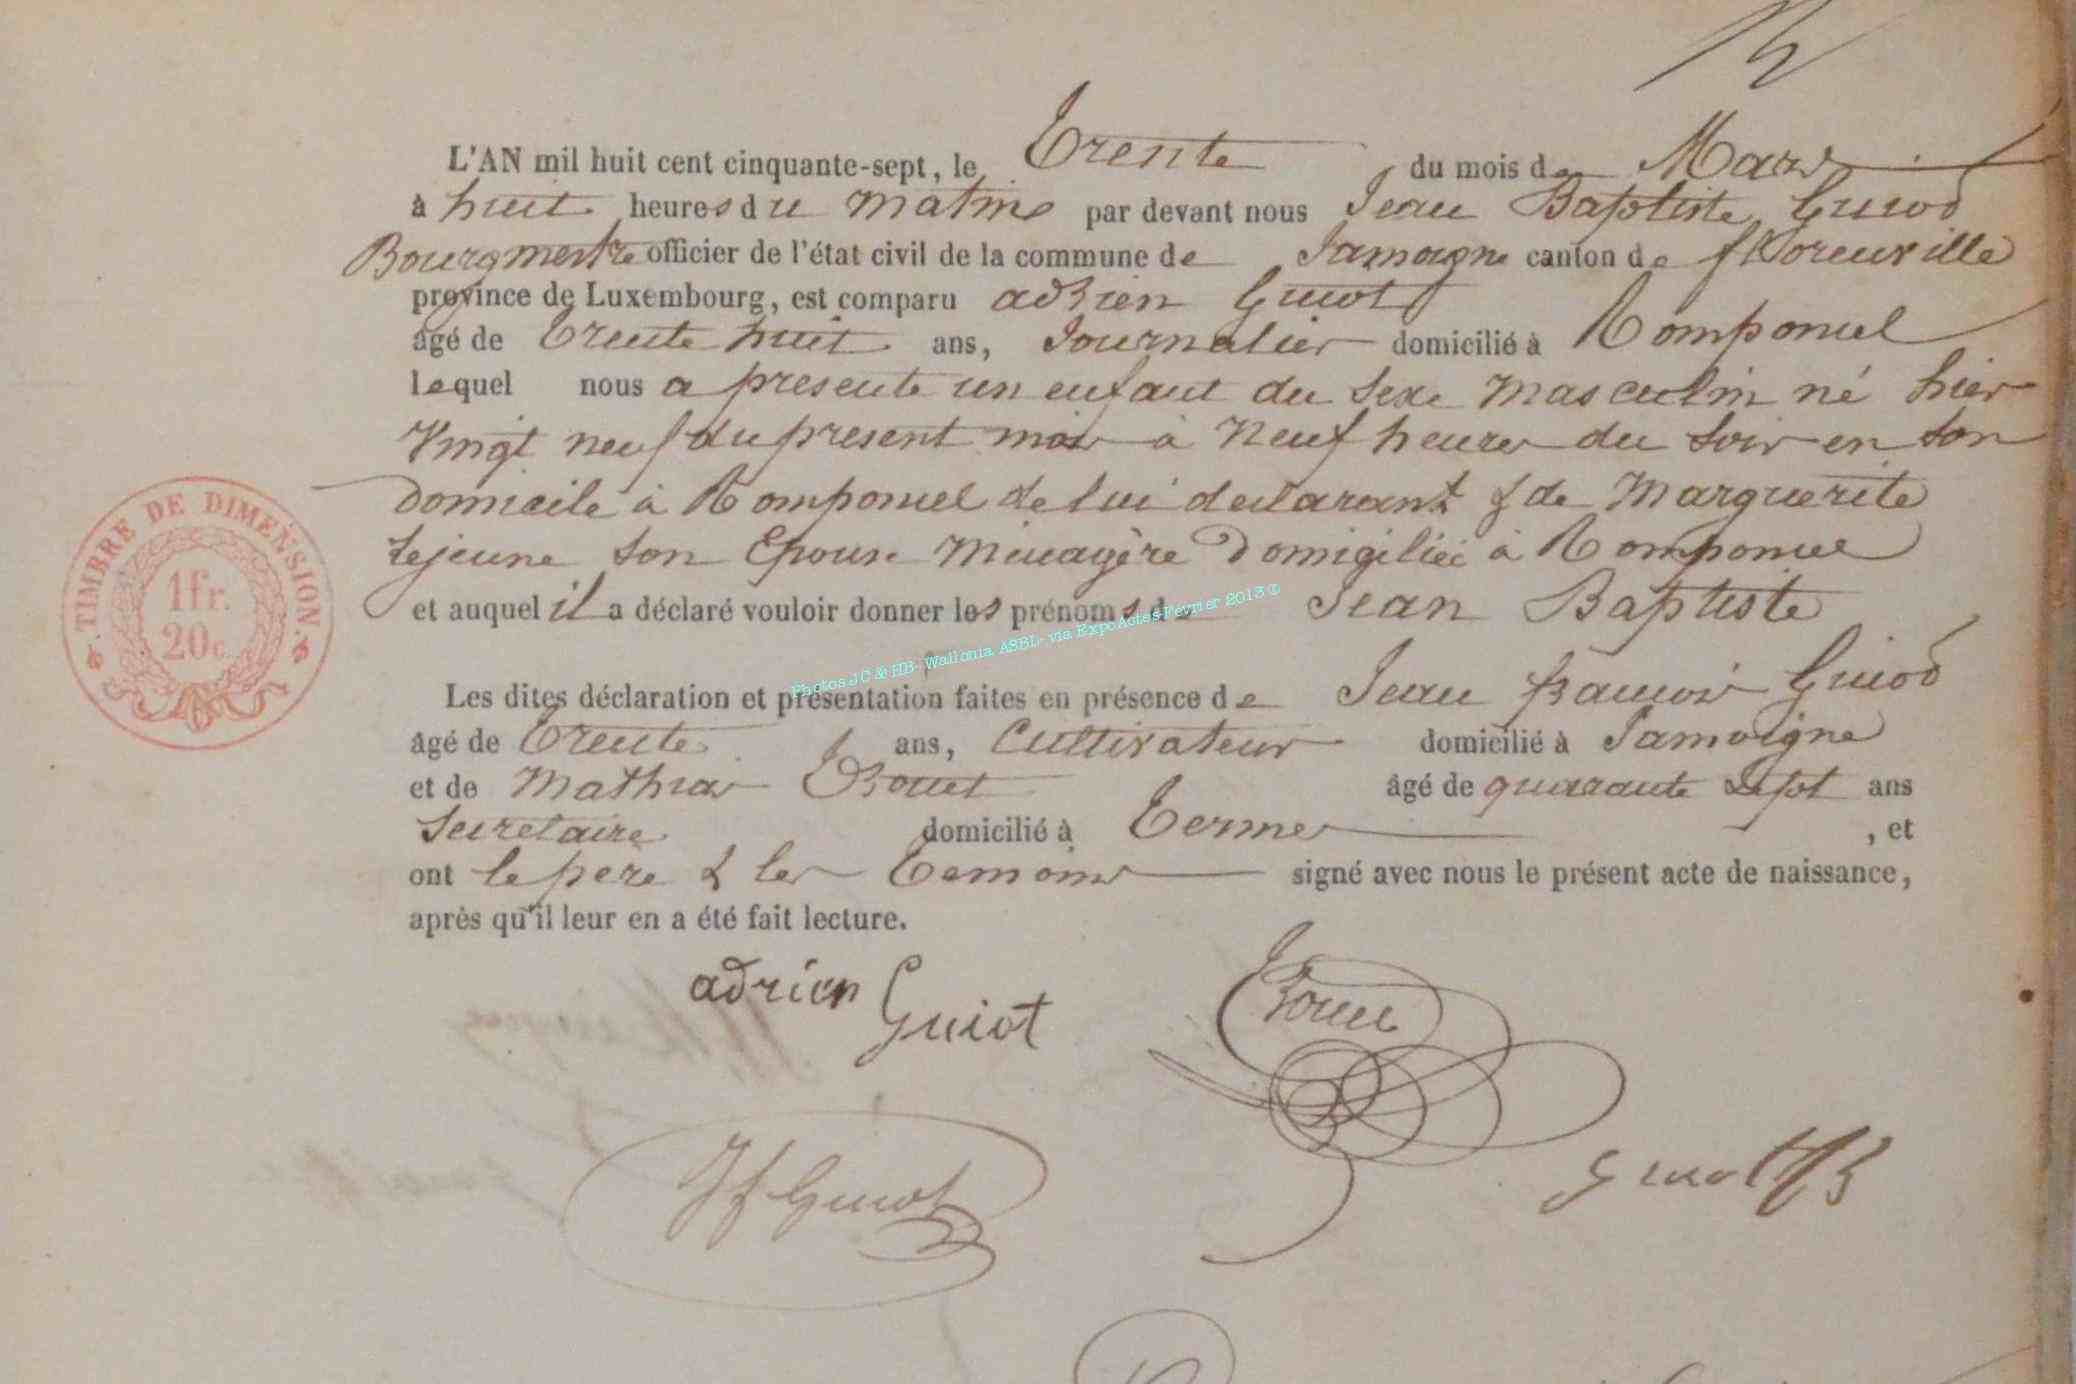 L'AN mil huit cent cinquante-sept, le Trente du mois de Mars
à huit heures du matins par devant nous Jean Baptiste Guiod
Bourgmestre officier de l'état civil de la commune de Jamoigne canton de florenville
province de Luxembourg, est comparu adrien Guiot
âgé de Trente huit ans, Journalier domicilié à Romponcel
lequel nous a presente un enfant du sexe masculin né hier
Vingt neuf du present mois à Neuf heures du soir en son
domicile à Romponcel de lui declarant & de Marguerite
Lejeune son Epouse Menagère Domigiliée à Romponcel
et auquel il a déclaré vouloir donner les prénoms de Jean Baptiste
Factos JC & HB- Wallonia ASBL- via ExpoActes-Février 2013 ©
Les dites déclaration et présentation faites en présence de Jean francois Guiod
âgé de Trente ans, Cultivateur domicilié à Jamoigne
et de Mathias âgé de quarante Sept ans
Secretaire domicilié à Termes , et
ont le pere & les Temoins signé avec nous le présent acte de naissance,
après qu'il leur en a été fait lecture.
adrien Guiot
Jf Guiot
TIMBRE DE DIMENSION.
1fr.
20c.